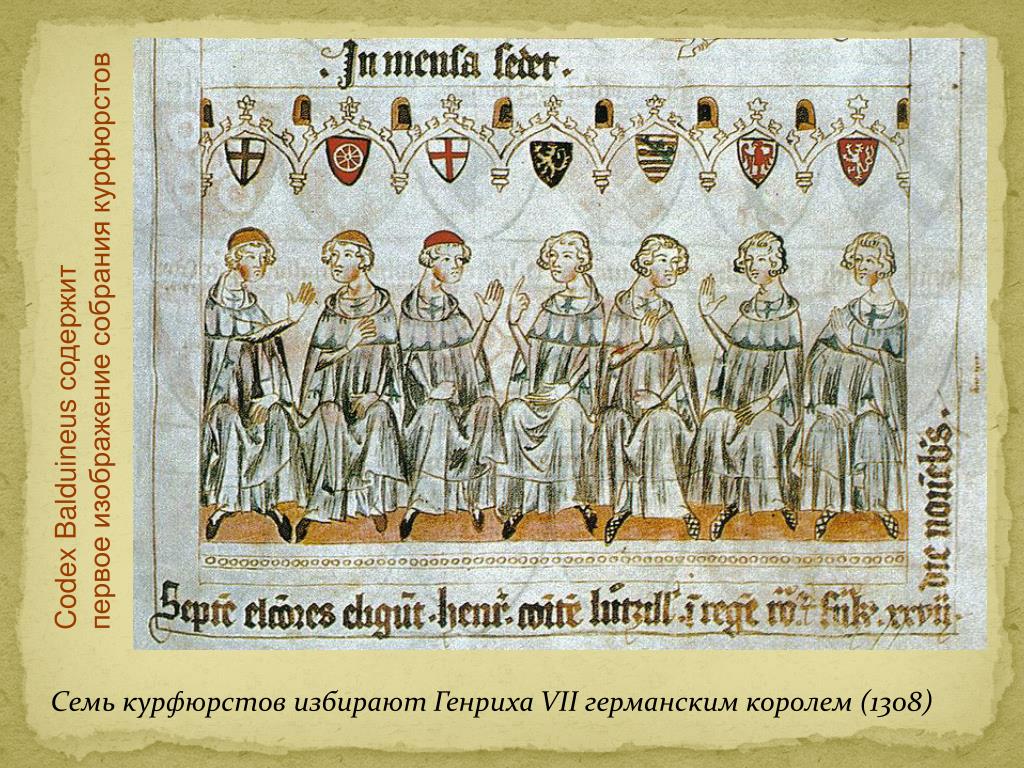 Codex Balduineus содержит
первое изображение собрания курфюрстов
. In mensa sedet .
Septē elcōres eligūt · henr̄ · cōītē
ī regē
xxvii ·
die nouēbis .
Семь курфюрстов избирают Генриха VII германским королем (1308)